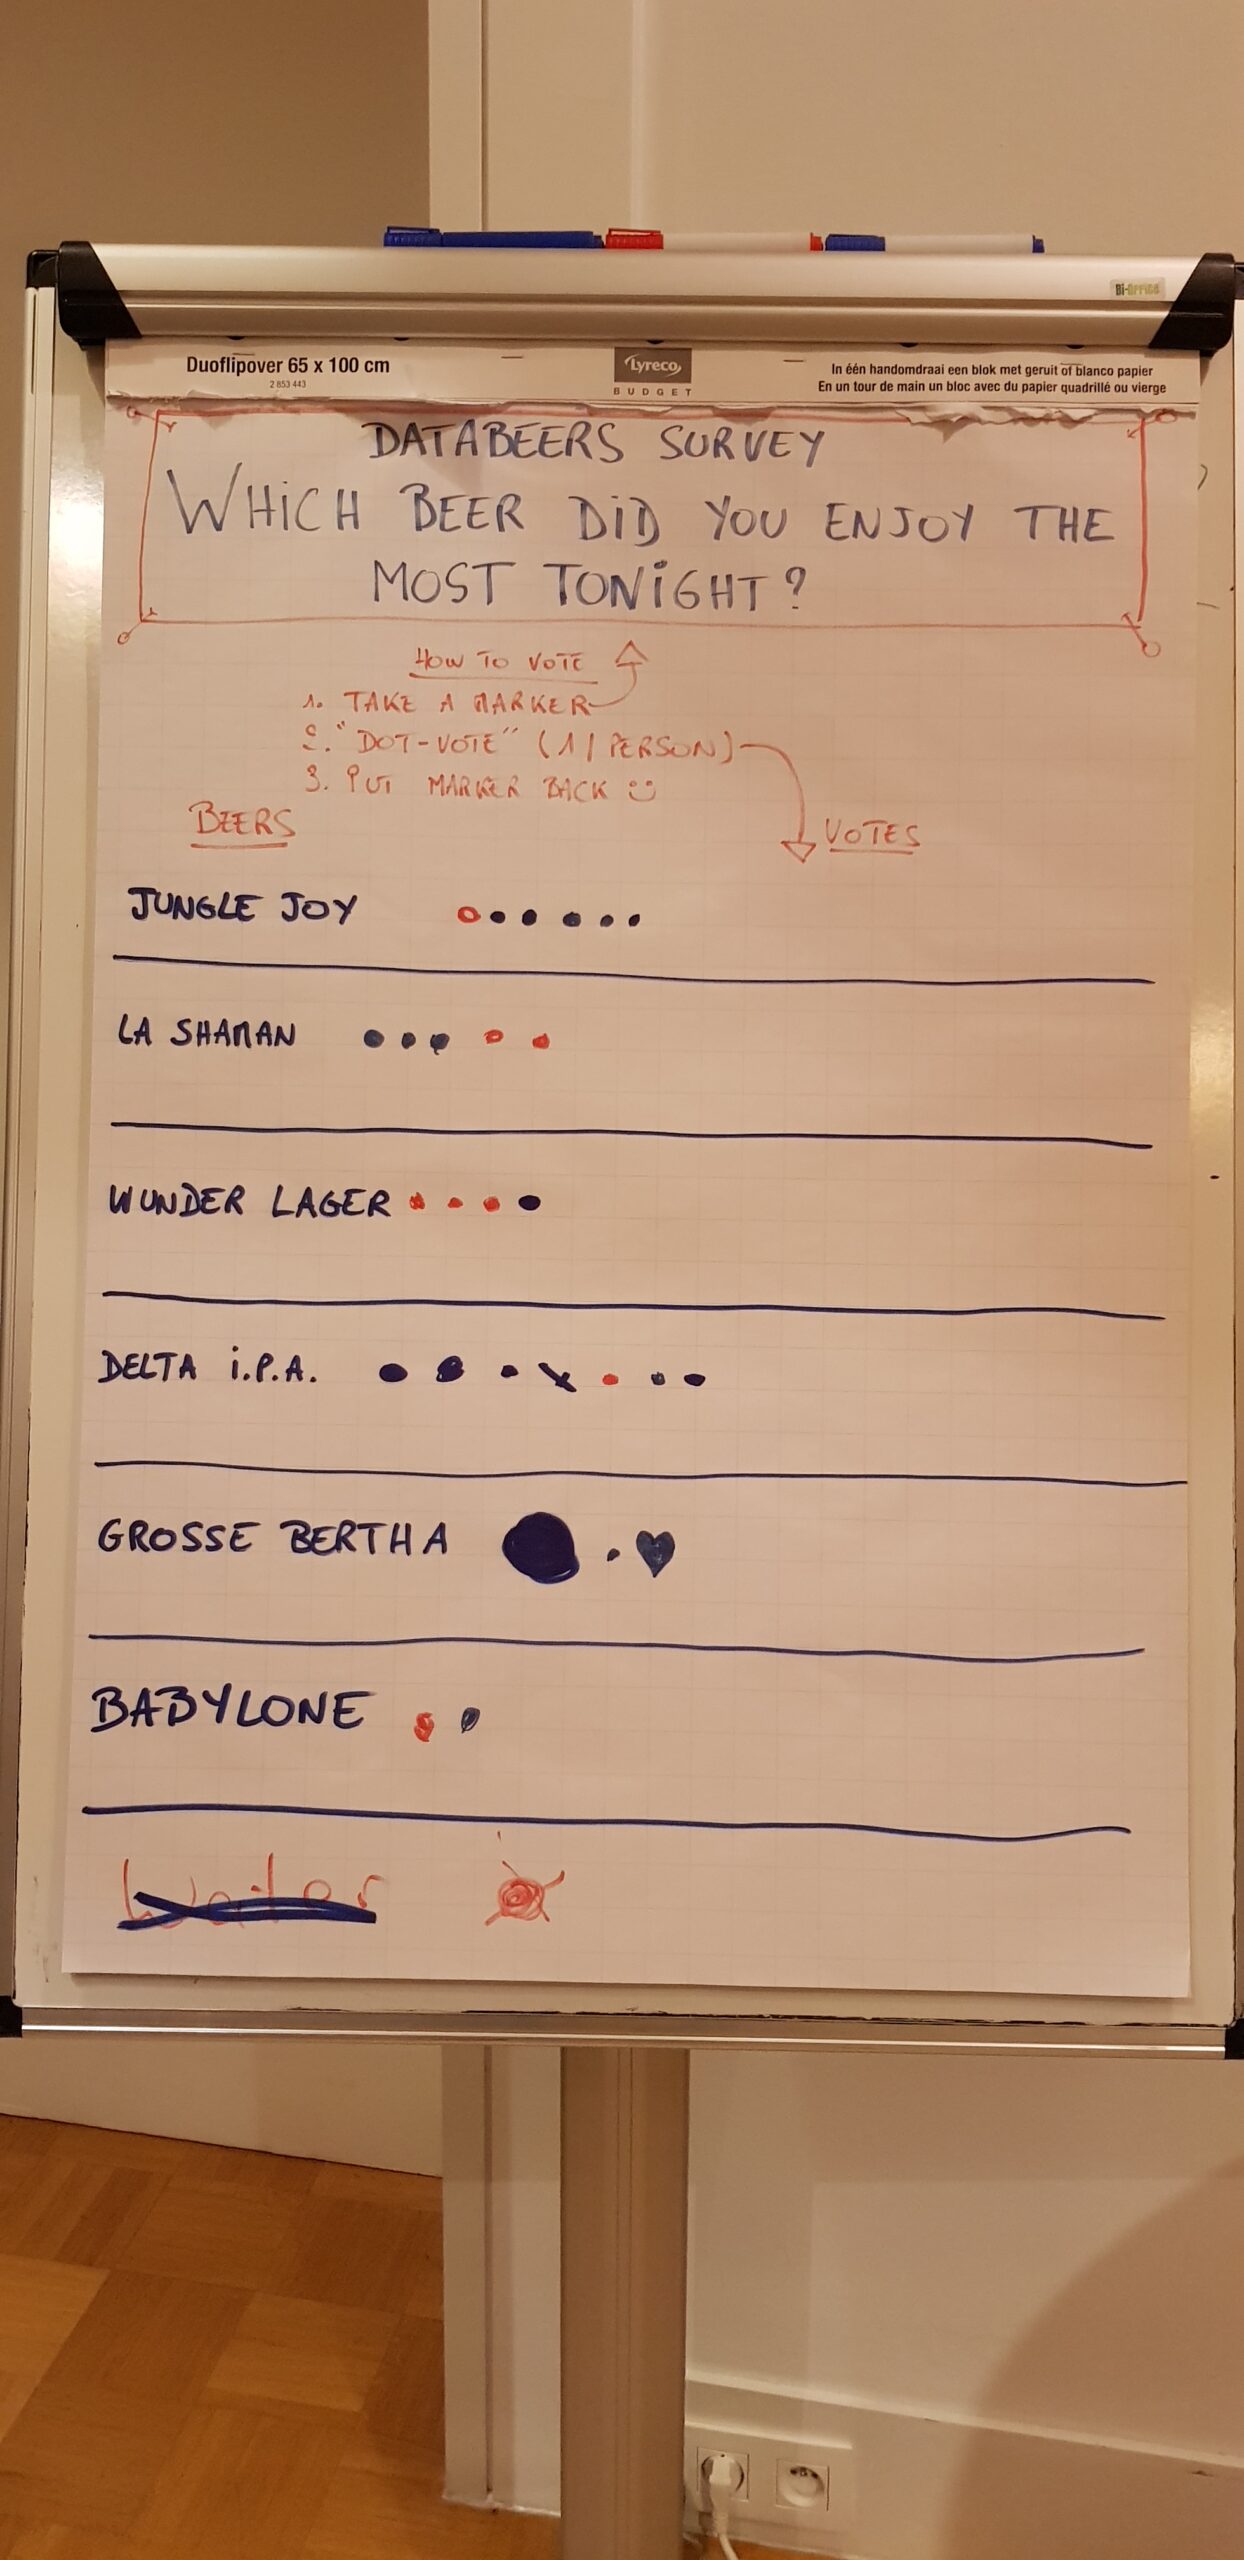 Bi-OFFICE
Duoflipover 65 x 100 cm
2 853 443
Lyreco
BUDGET
In één handomdraai een blok met geruit of blanco papier
En un tour de main un bloc avec du papier quadrillé ou vierge
DATABEERS SURVEY
WHiCH BEER DiD YOU ENJOY THE
MOST TONiGHT?
HOW TO VOTE
1. TAKE A MARKER
2. "DOT-VOTE" (1/PERSON)
3. PUT MARKER BACK
BEERS
VOTES
JUNGLE JOY
LA SHAMAN
WUNDER LAGER
DELTA i.P.A.
GROSSE BERTHA
BABYLONE
Water